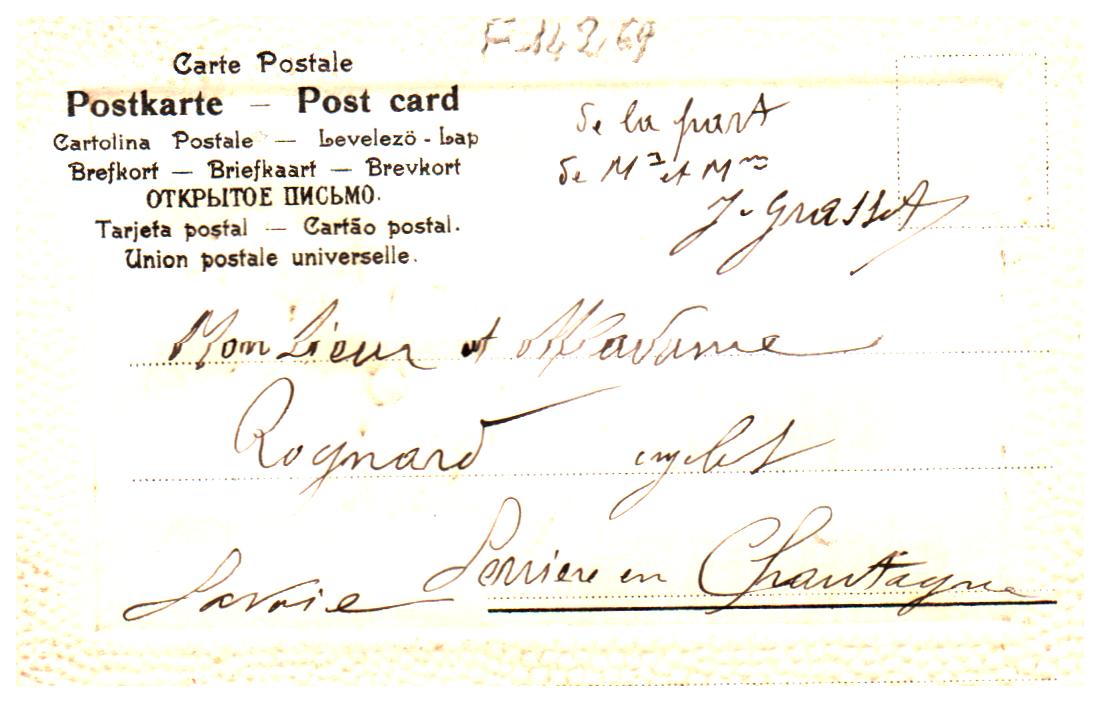 F 14269
Carte Postale
Postkarte — Post card
Cartolina Postale — Levelezö-Lap
Brefkort — Briefkaart — Brevkort
ОТКРЫТОЕ ПИСЬМО.
Tarjeta postal — Cartão postal.
Union postale universelle.
de la part
de Mr et Mme
J. Grasset
Monsieur et Madame
Rognard
Serriere en Chautagne
Savoie